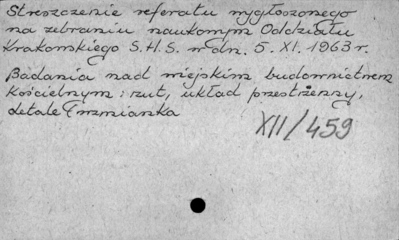 Streszczenie referatu wygłoszonego
na zebraniu naukowym Oddziału
Krakowskiego S.H.S. w dn. 5. XI. 1963 r.
Badania nad wiejskim budownictwem
kościelnym: rzut, układ przestrzenny,
detale i wzmianka
XII/459